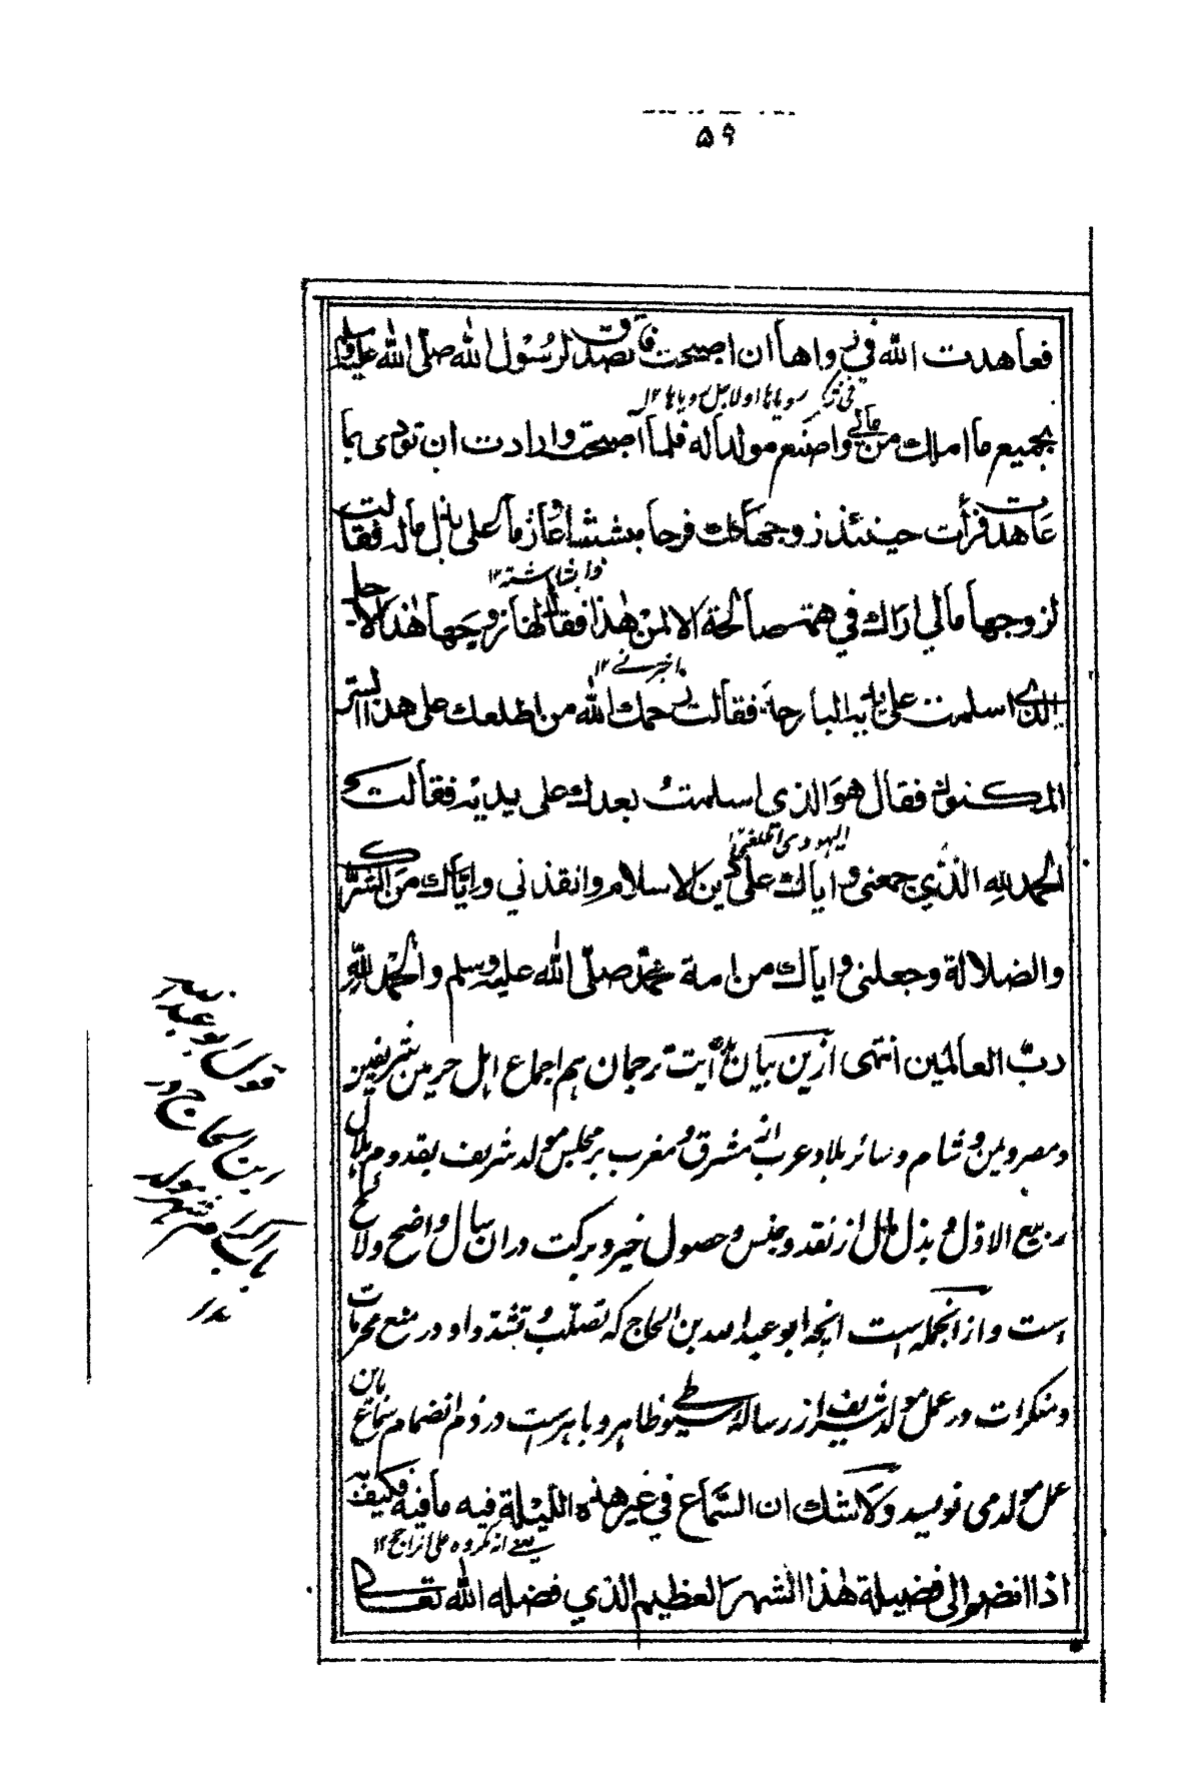 ۵۹
فعاهدت الله في رواها ان اصبحت فأتصدق لرسول الله صلّى الله عليه وسلم
بجميع ما املك من مالي واصنع مولدا له فلما اصبحت وارادت ان توفى بما
عاهدت فرأت حينئذ زوجها ذلك فرحا مبشتشا وعازما على بذل ماله فقالت
وابشاشته ۱۲
لزوجها مالي اراك في همة صالحة الا لمن هذا فقال لها زوجها هذا لاجل
اخبرني ۱۲
الذي اسلمت على يديه البارحة فقالت رحمك الله من اطلعك على هذا السر
المكنون فقال هو الذى اسلمت بعدك على يديه فقالت
الحمد لله الذي جمعنى واياك على دين الاسلام وانقذني واياك من الشرك
والضلالة وجعلنى واياك من امة محمد صلّى الله عليه وسلم والحمد لله
ربّ العالمين انتهى ازين بيان بلاغت ترجمان هم اجماع اهل حرمين شريفين
ومصر ويمن وشام وسائر بلاد عرب از مشرق ومغرب بر مجلس مولد شريف بقدوم هلال
ربيع الاوّل و بذل مال از نقد وجنس وحصول خير و بركت دران سال واضح ولائح
است و از انجمله است انچه ابو عبد الله بن الحاج كه تصلّب و تشدّد او در منع محرمات
ومنكرات در عمل مولد شريف از رساله سيوطى ظاهر و باهر است در ذم انضمام سماع بان
عمل مولد مى نويسد ولا شك ان السّماع في غير هذه الليلة فيه ما فيه فكيف به
يعني از مكروه على الراجح ۱۲
اذا انضم الى فضيلة هذا الشهر العظيم الذي فضله الله تعالى
قول ابو عبد الله
ابن الحاج در